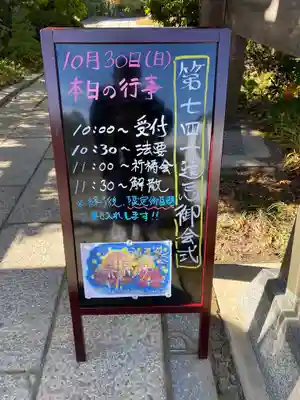 10月30日(日)
本日の行事
10:00〜受付
10:30〜法要
11:00〜祈祷会
11:30〜解散
※終了後、限定御首題
第七四一遠忌御会式